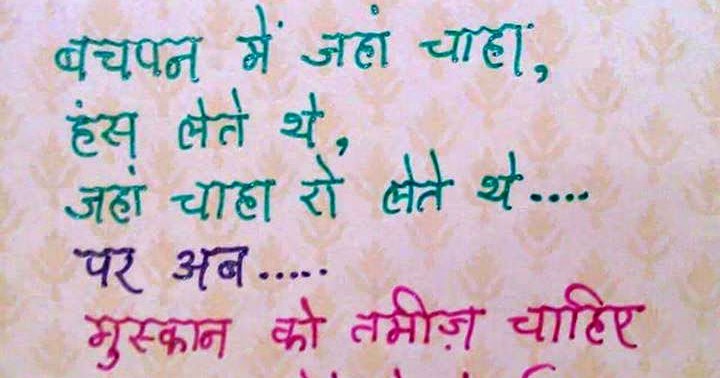 बचपन में जहां चाहा,
हंस लेते थे,
जहां चाहा रो लेते थे....
पर अब.....
मुस्कान को तमीज़ चाहिए